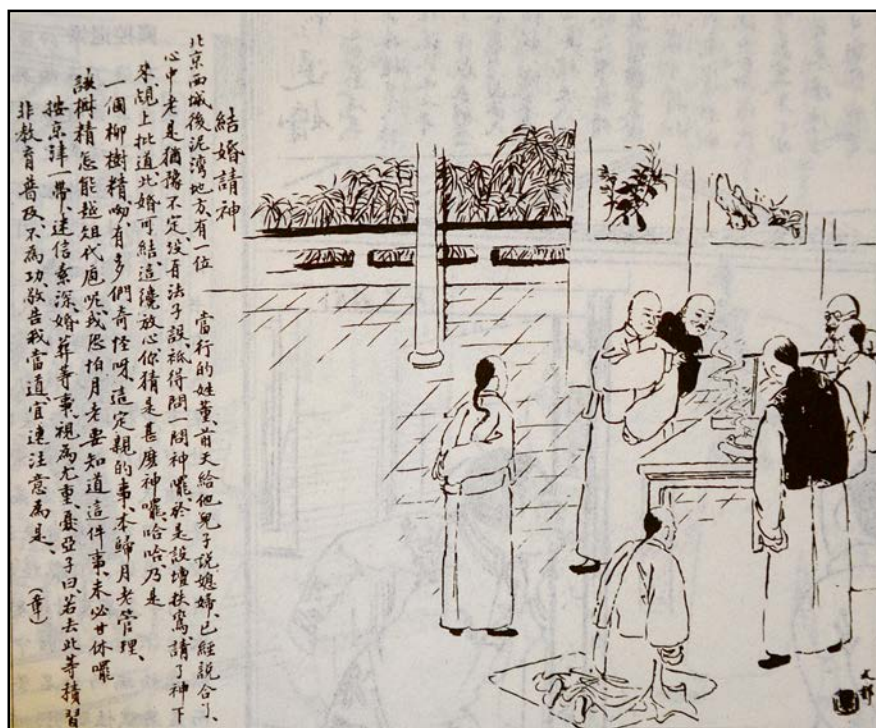 結婚請神
北京西城後泥湾地方有一位 當行的姓董前天給他兒子說媳婦已經説合了
心中老是猶豫不定沒有法子設祗得問一問神罷於是設壇扶鸞請了神下
來覘上批道此婚可結這纔放心你猜是甚麽神囉哈哈乃是
一個柳樹精呦有多們奇怪呀這定親的事本歸月老管理
該樹精怎能越俎代庖呢我恐怕月老要知道這件事未必甘休囉
按京津一帶迷信素深婚葬等事視為尤重憂亞子曰若去此等積習
非教育普及不為功敬告我當道宜速注意為是
(章)